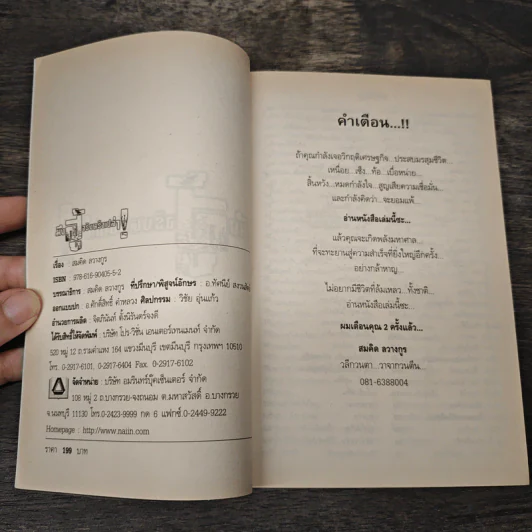 เรื่อง สมคิด ลวางกูร
ISBN 978-616-90405-5-2
บรรณาธิการ สมคิด ลวางกูร ที่ปรึกษา/พิสูจน์อักษร : อ.ทัศนีย์
ออกแบบปก : อ.ศักดิ์สิทธิ์ คำหลวง ศิลปกรรม : วิชัย อุ่นแก้ว
อำนวยการผลิต : จิตภินันท์ ตั้งนิรันดร์จงดี
ได้รับสิทธิ์ให้จัดพิมพ์ : บริษัท โปร-วิชั่น เอนเตอร์เทนเมนท์ จำกัด
520 หมู่ 12 ถ.รามคำแหง 164 แขวงมีนบุรี เขตมีนบุรี กรุงเทพฯ 10510
โทร. 0-2917-6101, 0-2917-6404 Fax. 0-2917-6102
จัดจำหน่าย : บริษัท อมรินทร์บุ๊คเซ็นเตอร์ จำกัด
108 หมู่ 2 ถ.บางกรวย-จงถนอม ต.มหาสวัสดิ์ อ.บางกรวย
จ.นนทบุรี 11130 โทร.0-2423-9999 กด 6 แฟกซ์.0-2449-9222
Homepage : http://www.naiin.com
ราคา 199 บาท
คำเตือน...!!
ถ้าคุณกำลังเจอวิกฤติเศรษฐกิจ...ประสบมรสุมชีวิต...
เหนื่อย...เซ็ง...ท้อ...เบื่อหน่าย...
สิ้นหวัง...หมดกำลังใจ...สูญเสียความเชื่อมั่น...
และกำลังคิดว่า...จะยอมแพ้...
อ่านหนังสือเล่มนี้ซะ...
แล้วคุณจะเกิดพลังมหาศาล...
ที่จะทะยานสู่ความสำเร็จที่ยิ่งใหญ่อีกครั้ง...
อย่างกล้าหาญ...
ไม่อยากมีชีวิตที่ล้มเหลว...ทั้งชาติ...
อ่านหนังสือเล่มนี้ซะ...
ผมเตือนคุณ 2 ครั้งแล้ว...
สมคิด ลวางกูร
วลีกวนตา...วาจากวนตีน...
081-6388004